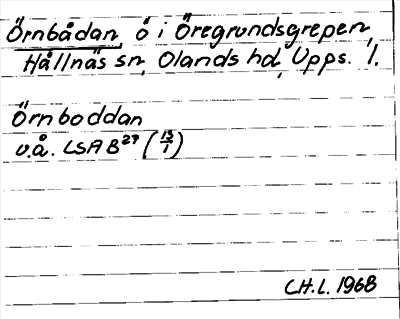 Örnbådan, ö i Öregrundsgrepen,
Hållnäs sn, Olands hd, Upps. l.
Örnboddan
u.å. LSA B²⁷ (13/1)
C.H.L. 1968